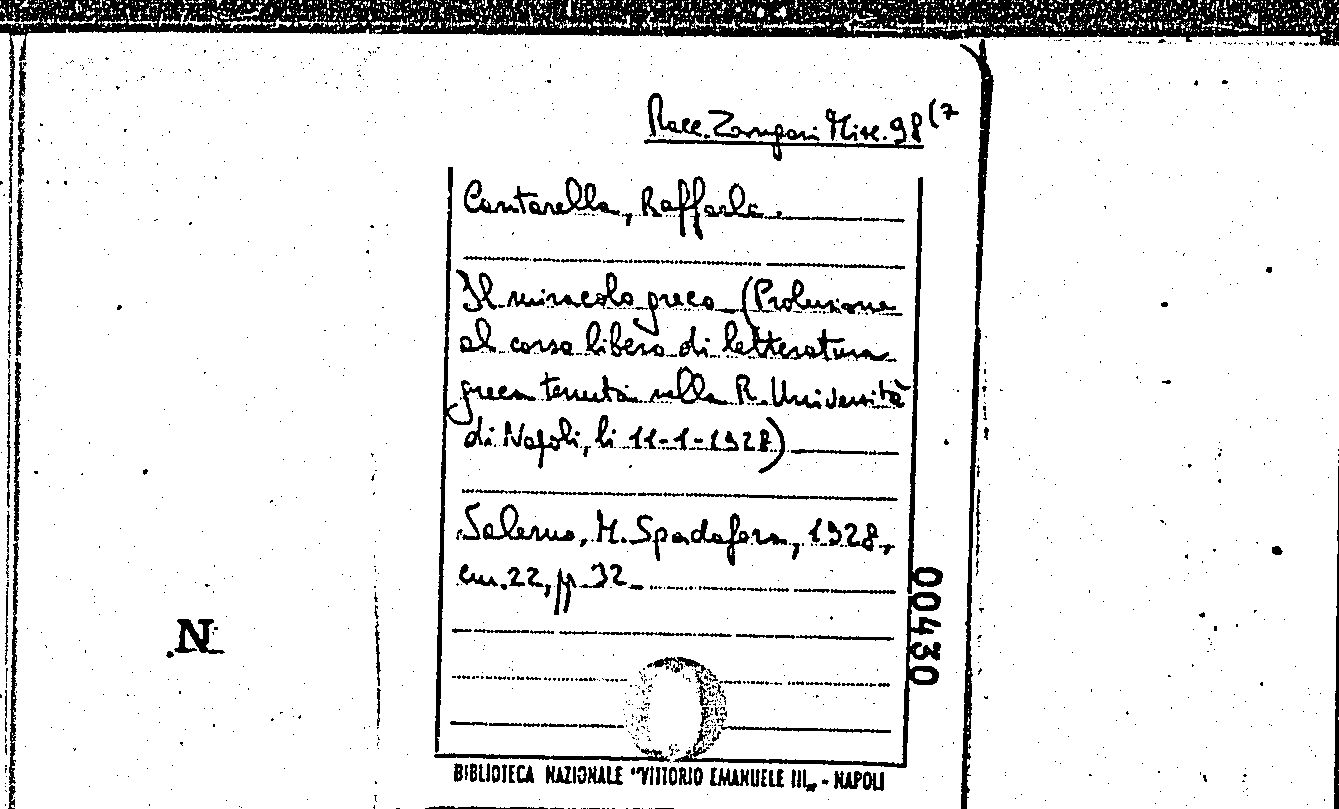 Racc. Zangari Misc. 98 (7
Cantarella, Raffaele.
Il miracolo greco (Prolusione
al corso libero di letteratura
greca tenuta nella R. Università
di Napoli, li 11-1-1928)
Salerno, M. Spadafora, 1928,
cm. 22, pp. 32
00430
N
BIBLIOTECA NAZIONALE "VITTORIO EMANUELE III„ - NAPOLI